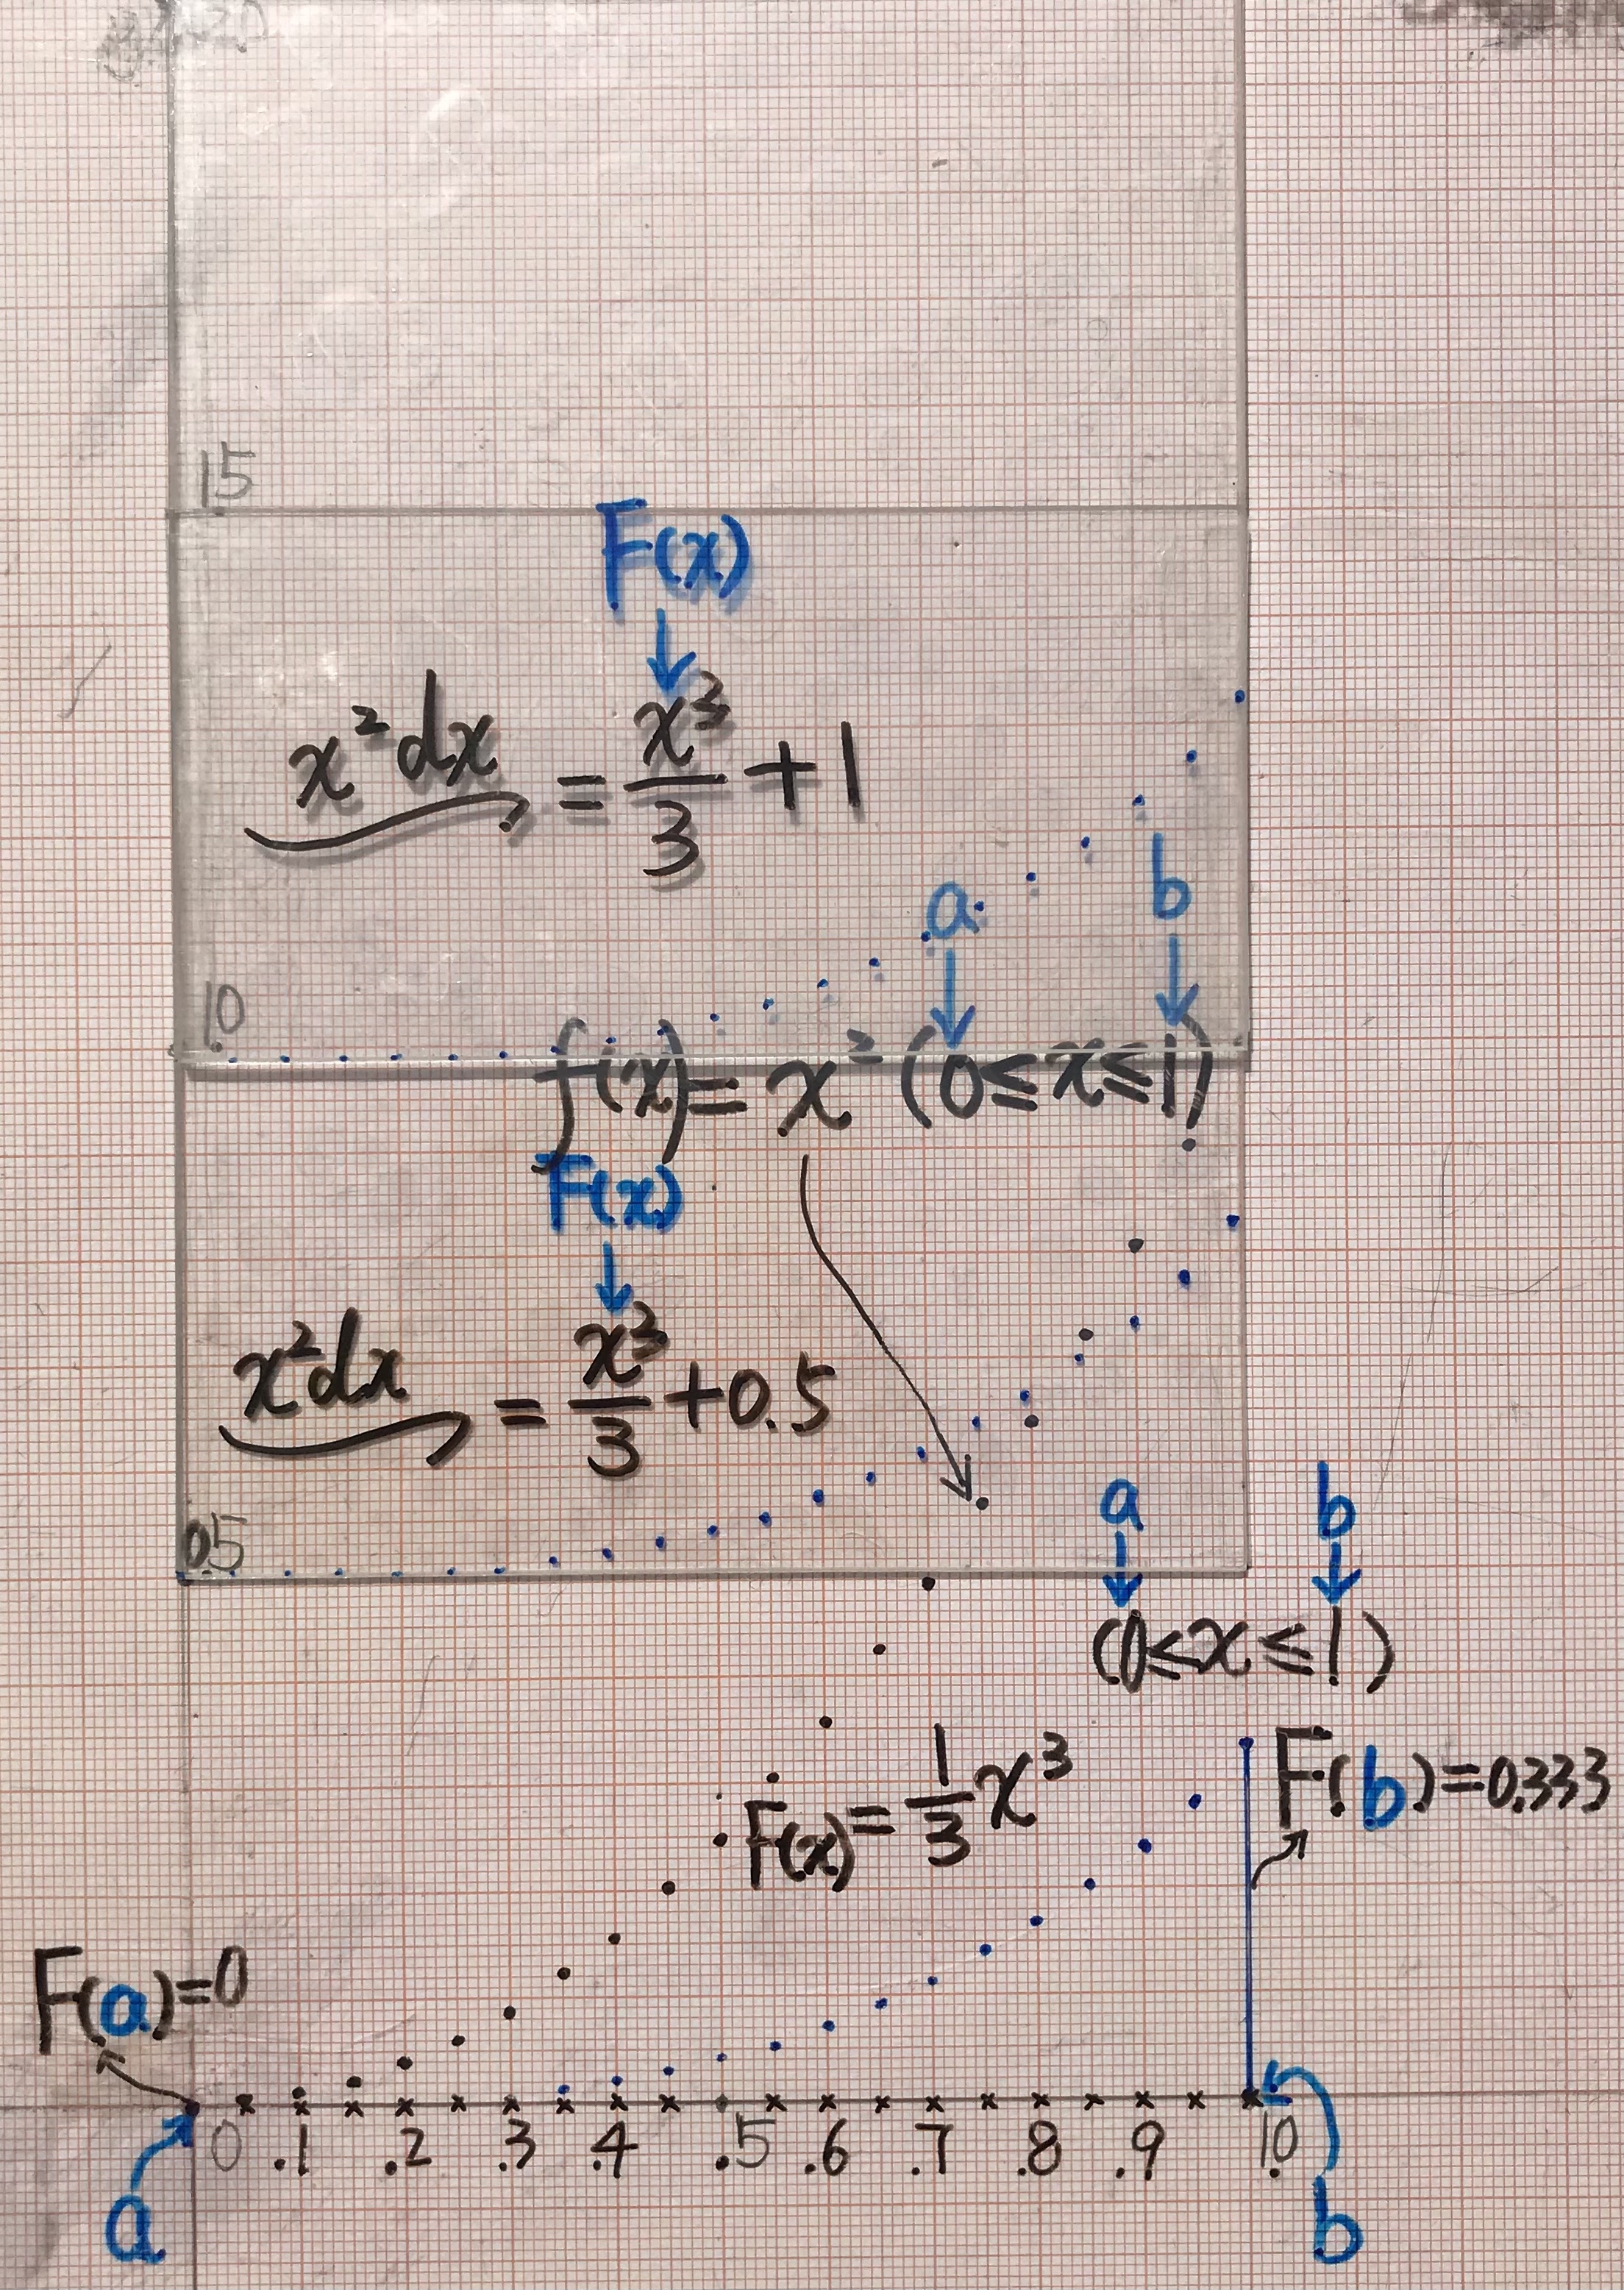 15
F(x)
x² dx = x³/3 + 1
a b
10
f(x) = x² (0 ≤ x ≤ 1)
F(x)
x² dx = x³/3 + 0.5
a b
0.5
(0 ≤ x ≤ 1)
F(x) = 1/3 x³
F(b) = 0.333
F(a) = 0
0 .1 .2 .3 .4 .5 .6 .7 .8 .9 1.0
a b